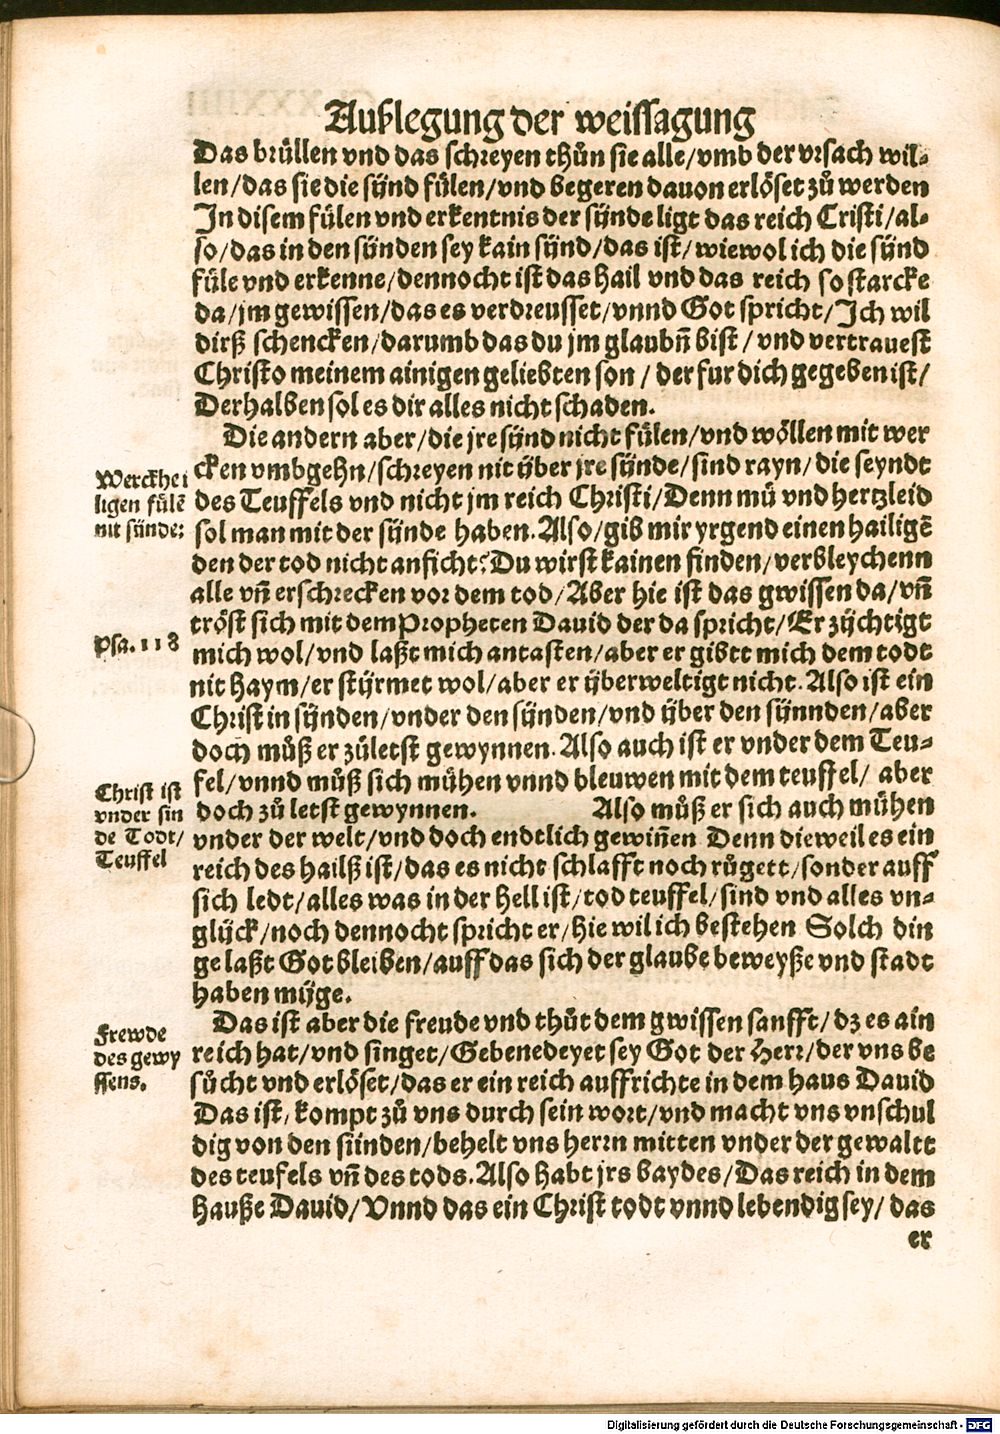 Außlegung der weissagung
Das brüllen vnd das schreyen thůn sie alle/vmb der vrsach wil-
len/das sie die sünd fülen/vnd begeren dauon erlöset zů werden
In disem fülen vnd erkentnis der sünde ligt das reich Cristi/al-
so/das in den sünden sey kain sünd/das ist/wiewol ich die sünd
füle vnd erkenne/dennocht ist das hail vnd das reich so starcke
da/jm gewissen/das es verdreusset/vnnd Got spricht/Ich wil
dirß schencken/darumb das du jm glaubn̄ bist/vnd vertrauest
Christo meinem ainigen geliebten son/der fur dich gegeben ist/
Derhalben sol es dir alles nicht schaden.
Die andern aber/die jre sünd nicht fülen/vnd wöllen mit wer
cken vmbgehn/schreyen nit über jre sünde/sind rayn/die seyndt
des Teuffels vnd nicht jm reich Christi/Denn mü vnd hertzleid
sol man mit der sünde haben. Also/gib mir yrgend einen hailigē
den der tod nicht anficht? Du wirst kainen finden/verbleychenn
alle vn̄ erschrecken vor dem tod/Aber hie ist das gwissen da/vn̄
tröst sich mit dem Propheten Dauid der da spricht/Er züchtigt
mich wol/vnd laßt mich antasten/aber er gibtt mich dem todt
nit haym/er stürmet wol/aber er überweltigt nicht. Also ist ein
Christ in sünden/vnder den sünden/vnd über den sünnden/aber
doch můß er zůletst gewynnen. Also auch ist er vnder dem Teu-
fel/vnnd můß sich mühen vnnd bleuwen mit dem teuffel/ aber
doch zů letst gewynnen. Also můß er sich auch mühen
vnder der welt/vnd doch endtlich gewin̄en Denn dieweil es ein
reich des hailß ist/das es nicht schlafft noch růgett/sonder auff
sich ledt/alles was in der hell ist/tod teuffel/sind vnd alles vn-
glück/noch dennocht spricht er/hie wil ich bestehen Solch din
ge laßt Got bleiben/auff das sich der glaube beweyße vnd stadt
haben müge.
Das ist aber die freude vnd thůt dem gwissen sanfft/dz es ain
reich hat/vnd singet/Gebenedeyet sey Got der Herr/der vns be
sůcht vnd erlöset/das er ein reich auffrichte in dem haus Dauid
Das ist/kompt zů vns durch sein wort/vnd macht vns vnschul
dig von den sünden/behelt vns herrn mitten vnder der gewaltt
des teufels vn̄ des tods. Also habt jrs baydes/Das reich in dem
hauße Dauid/Vnnd das ein Christ todt vnnd lebendig sey/das
er
Werckhei
ligen fülē
nit sünde:
Psa. 118
Christ ist
vnder sin
de Todt/
Teuffel
Frewde
des gewy
ssens.
Digitalisierung gefördert durch die Deutsche Forschungsgemeinschaft - DFG